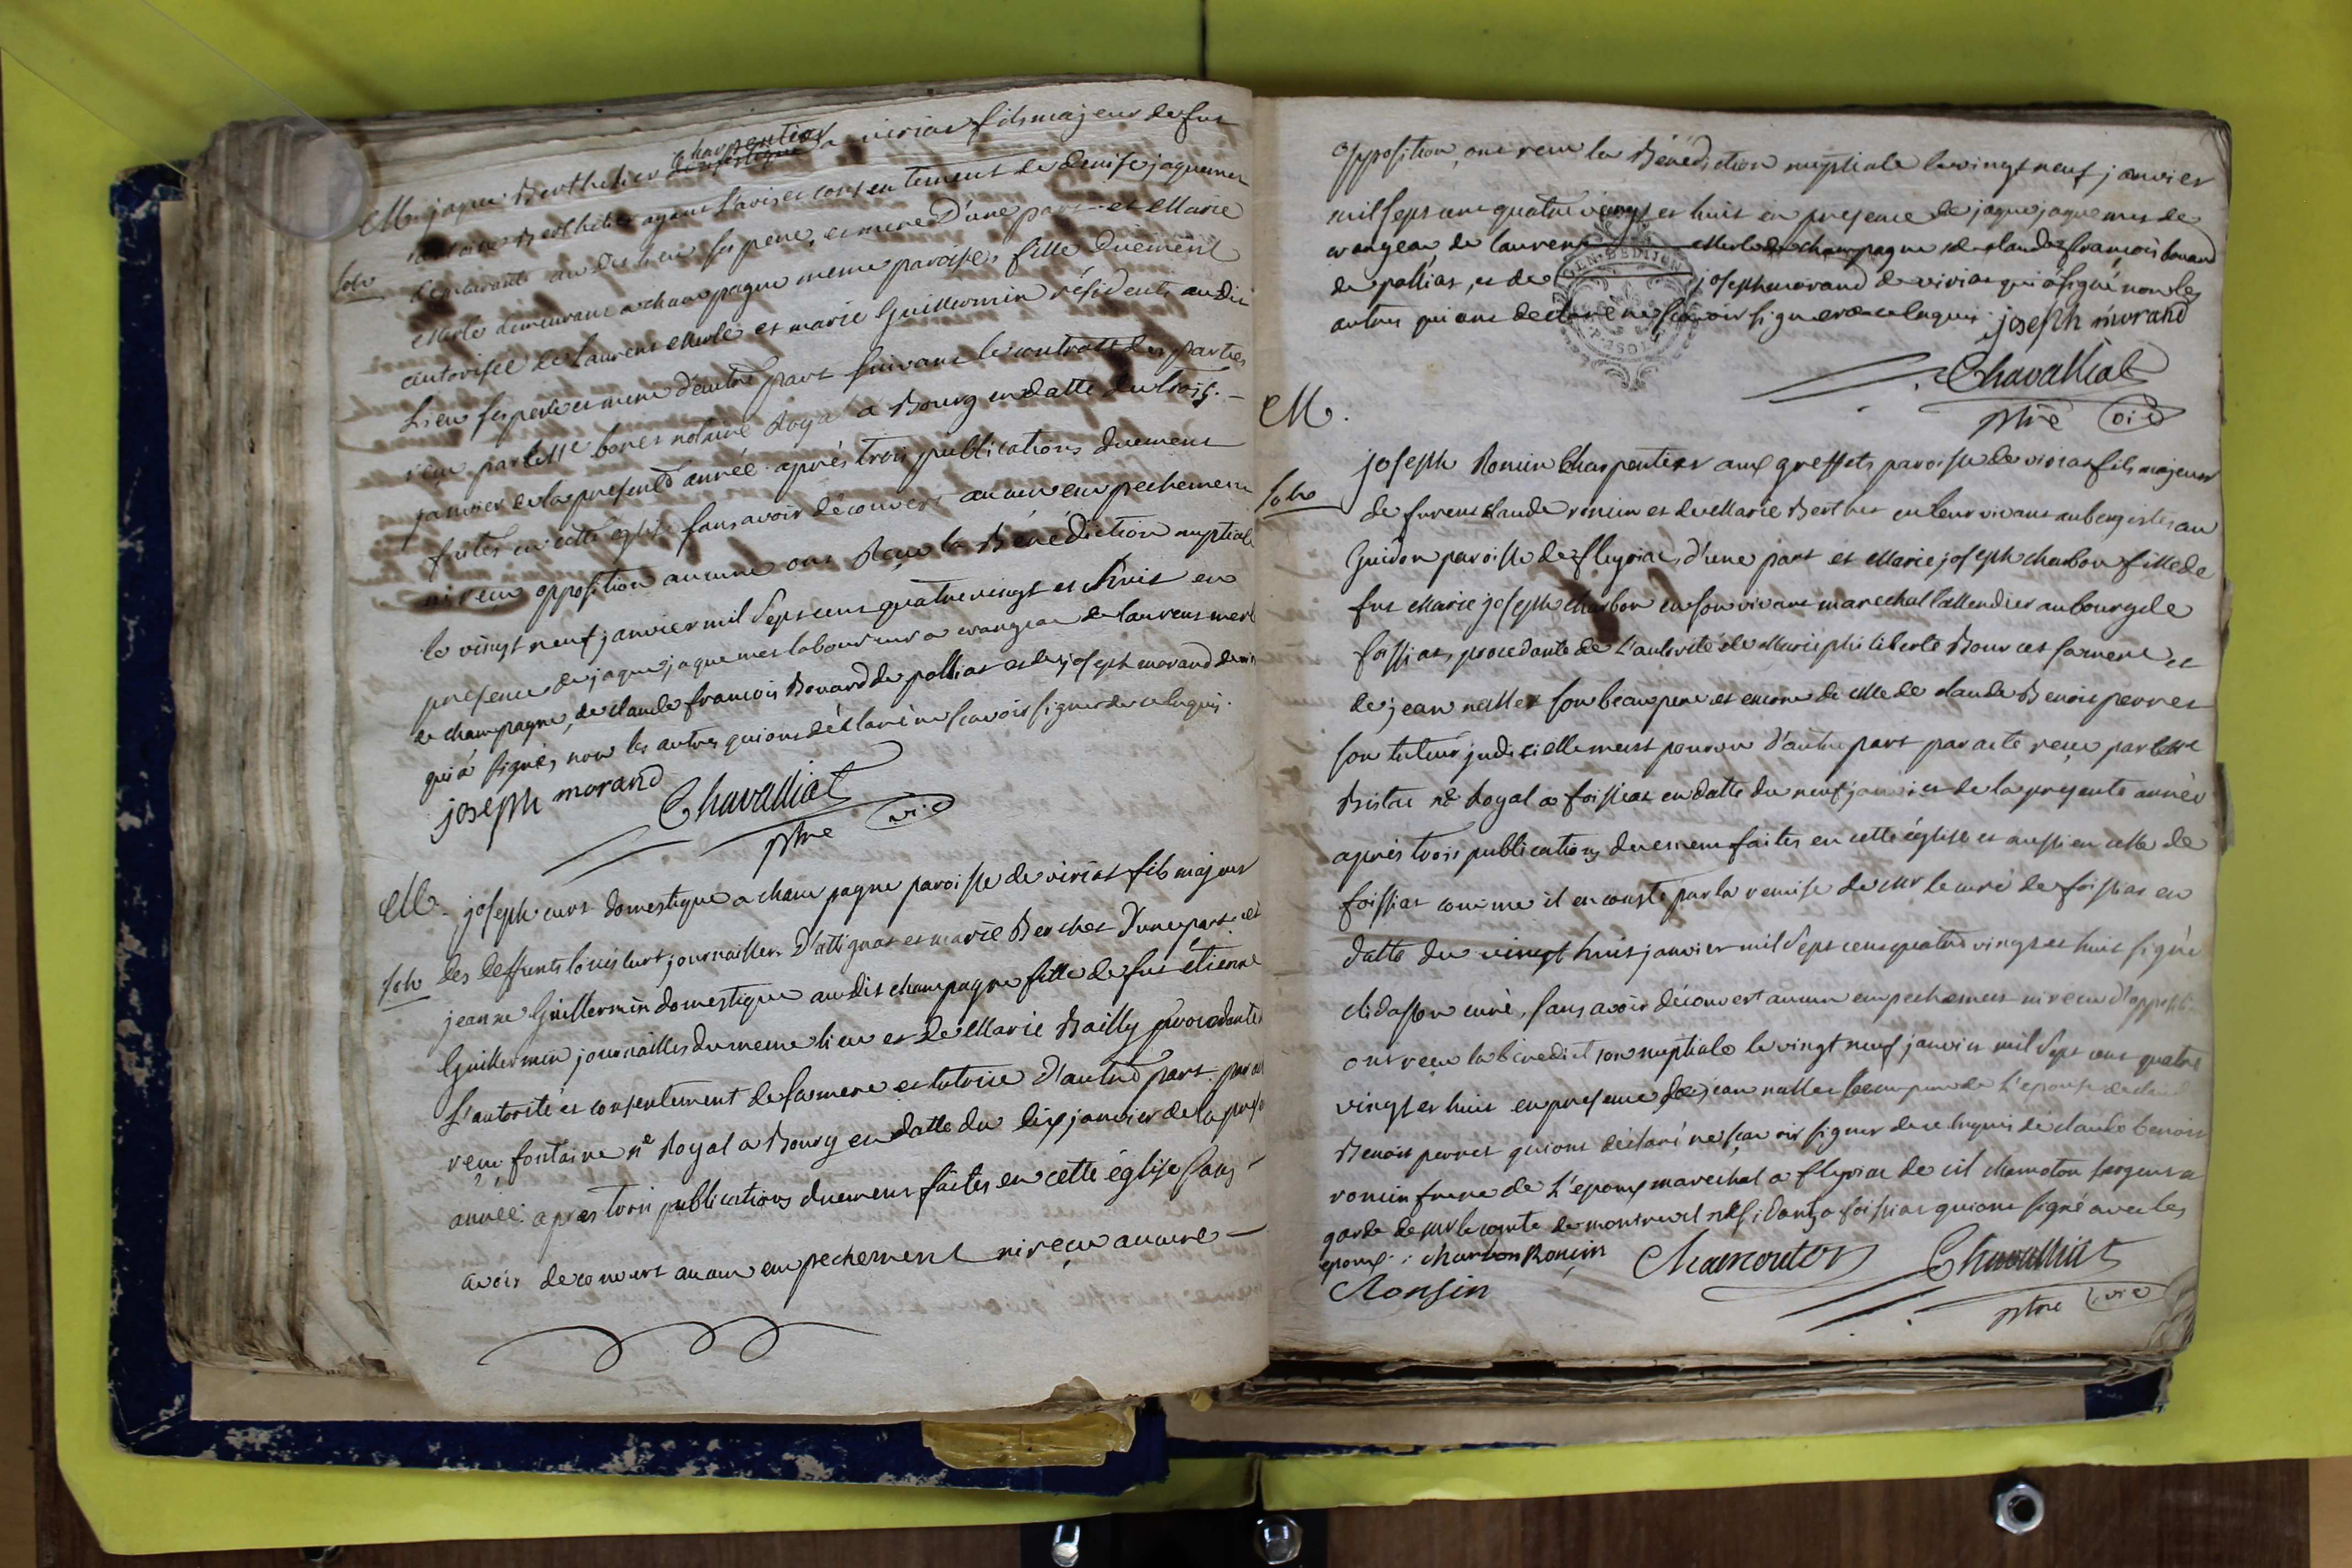 M. jaques Berthelier domestique charpentier a viriat fils majeur de fut
antoine Berthelier ayant l'avis et consentement de denise jaquemet
solv
demeurante audit lieu ses pere et mere d'une part et Marie
Merle demeurant a champagne meme paroisse, fille duement
autorisée de Laurent Merle et marie Guillermin résidents audit
Lieu ses pere et mere d'autre part suivant le contract des parties
reçu par Mre bonet notaire Royal a Bourg en datte du trois
janvier de la presente année après trois publications duement
faites en cette eglise sans avoir découvert aucun empechement
ni reçu opposition aucune ont Reçu la Bénédiction nuptiale
le vingt neuf janvier mil sept cent quatre vingt et huit en
presence de jaque jaquemet laboureur a crangeac de laurent merle
de champagne, de claude françois Bouard de pollias et de joseph morand de
qui a signé, non les autres qui ont déclaré ne scavoir signer de ce enquis.
joseph morand
Chavalliat
ptre vic
M. joseph curt domestique a champagne paroisse de viriat fils majeur
solv des deffunts loüis curt journaillier d'attignat et marie Berchet d'une part et
jeanne Guillermin domestique audit champagne fille de fut étienne
Guillermin journaillier du meme lieu et de Marie Bailly procedante
L'autorité et consentement de sa mere et tutrice d'autre part par
reçu fontaine ne Royal a Bourg en datte du dix janvier de la
année après trois publications duement faites en cette église sans
avoir decouvert aucun empechement ni reçu aucune
opposition, ont reçu la Bénédiction nuptiale le vingt neuf janvier
mil sept cent quatre vingt et huit en presence de jaque jaquemet de
crangeac de laurent Merle de champagne de claude françois bouard
de pollias, et de joseph morand de viriat qui a signé non les
autres qui ont declaré ne scavoir signer de ce enquis. joseph morand
Chavalliat
ptre vic
M.
joseph Ronin Charpentier aux greffets paroisse de viriat fils majeur
solv
de furent claude ronin et de Marie Berthet en leur vivant aubergistes au
Guidon paroisse de fleyriat, d'une part et Marie joseph charbon fille de
fut Marie joseph charbon en son vivant marechal taillendier au bourg de
foissiat, procedante de l'autorité de Marie philiberte Bourcet sa mere et
de jean nallet son beau pere et encore de celle de claude Benoit perret
son tuteur judiciellement pourvu d'autre part par acte reçu par Mre
ne Royal a foissiat en datte du neuf janvier de la presente année
après trois publications duement faites en cette église et aussi en celle de
foissiat comme il en conste par la remise de Mr le curé de foissiat en
datte du vingt huit janvier mil sept cent quatre vingt et huit signé
curé, sans avoir découvert aucun empechement ni reçu d'opposit
ont reçu la bénédiction nuptiale le vingt neuf janvier mil sept cent quatre
vingt et huit en presence de jean nallet beau pere de L'epouse de claude
Benoit perret qui ont déclaré ne scavoir signer de ce enquis de claude benoit
ronin frere de L'epoux marechal a fleyriat de chamoton sergent
garde de Mr le comte de montrevel résidant a foissiat qui ont signé avec les
epoux : charbon Ronin Chamouton Chavalliat
Ronsin
ptre vic